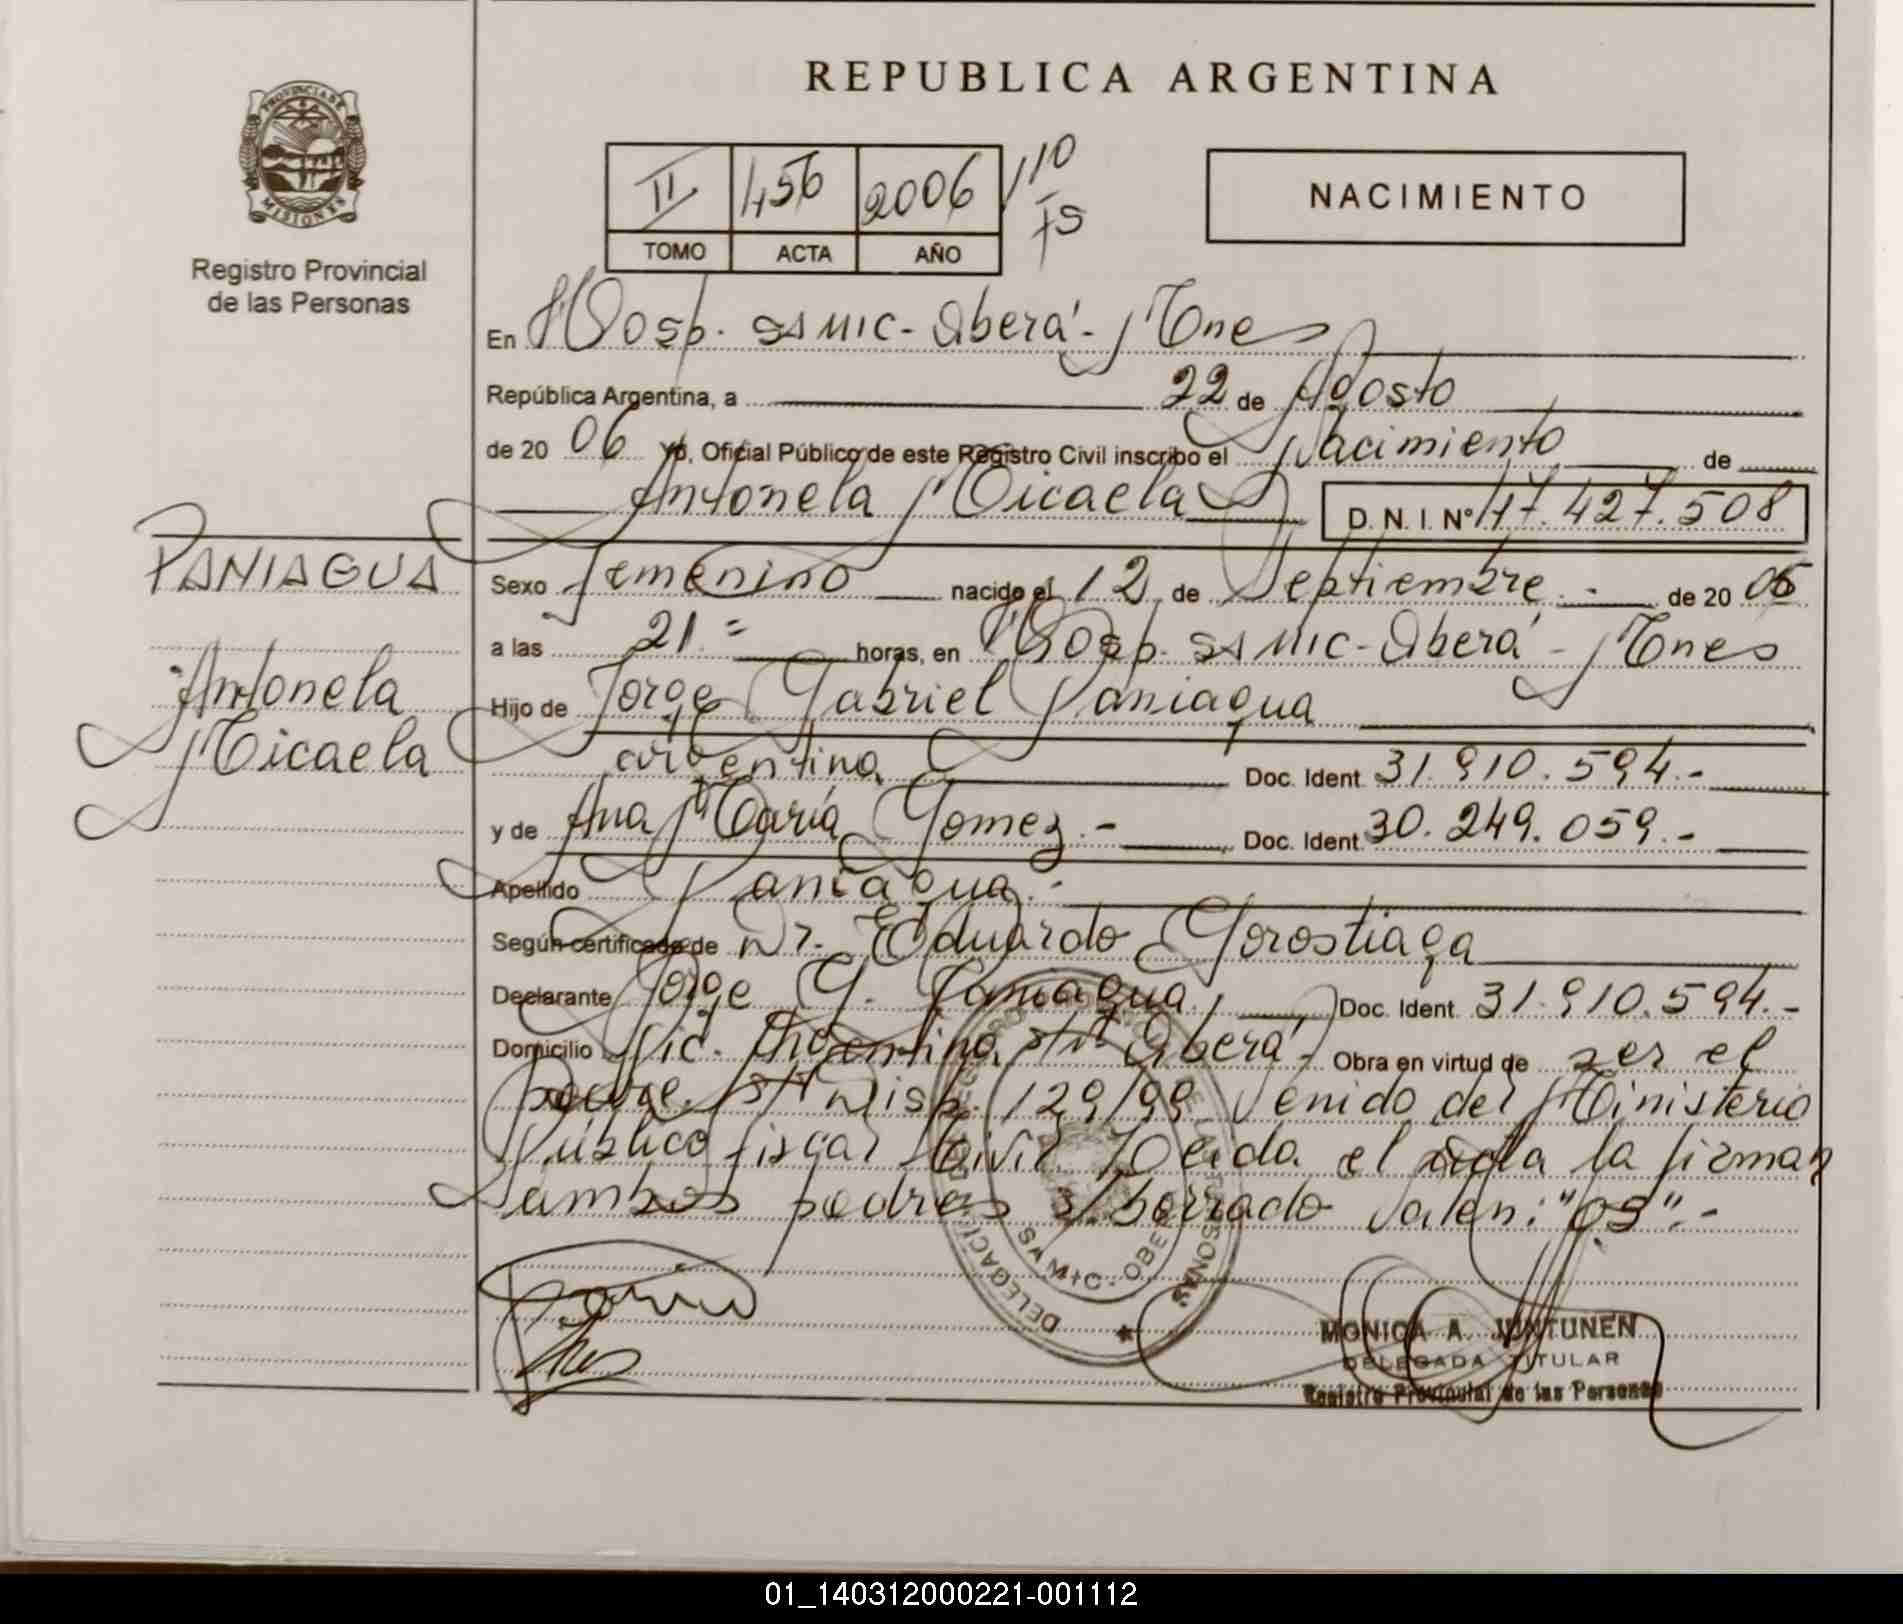 REPUBLICA ARGENTINA
PROVINCIA DE
MISIONES
Registro Provincial
de las Personas
II 456 2006 110
TOMO ACTA AÑO
NACIMIENTO
En Hosp. SAMIC - Oberá - Mnes
República Argentina, a 22 de Agosto
de 20 06 Yo, Oficial Público de este Registro Civil inscribo el Nacimiento de
Antonela Micaela D. N. I. Nº 47.427.508
PANIAGUA
Sexo femenino nacido el 12 de Septiembre.- de 20 05
a las 21.= horas, en Hosp. SAMIC - Oberá - Mnes
Antonela
Micaela
Hijo de Jorge Gabriel Paniagua
argentina Doc. Ident. 31.910.594.-
y de Ana María Gomez.- Doc. Ident. 30.249.059.-
Apellido Paniagua.-
Según certificado de Dr. Eduardo Gorostiaga
Declarante Jorge G. Paniagua. Doc. Ident. 31.910.594.-
Domicilio Argentina Oberá - Obra en virtud de ser el
padre. Disp. 129/99 Venido del Ministerio
Público fiscal Civil Leida el acta la firman
ambos padres s/borrado valen: "05".-
DELEGACI
SAMIC - OBE
PERSONAS
MONICA A. JUNTUNEN
DELEGADA TITULAR
Registro Provincial de las Personas
01_140312000221-001112